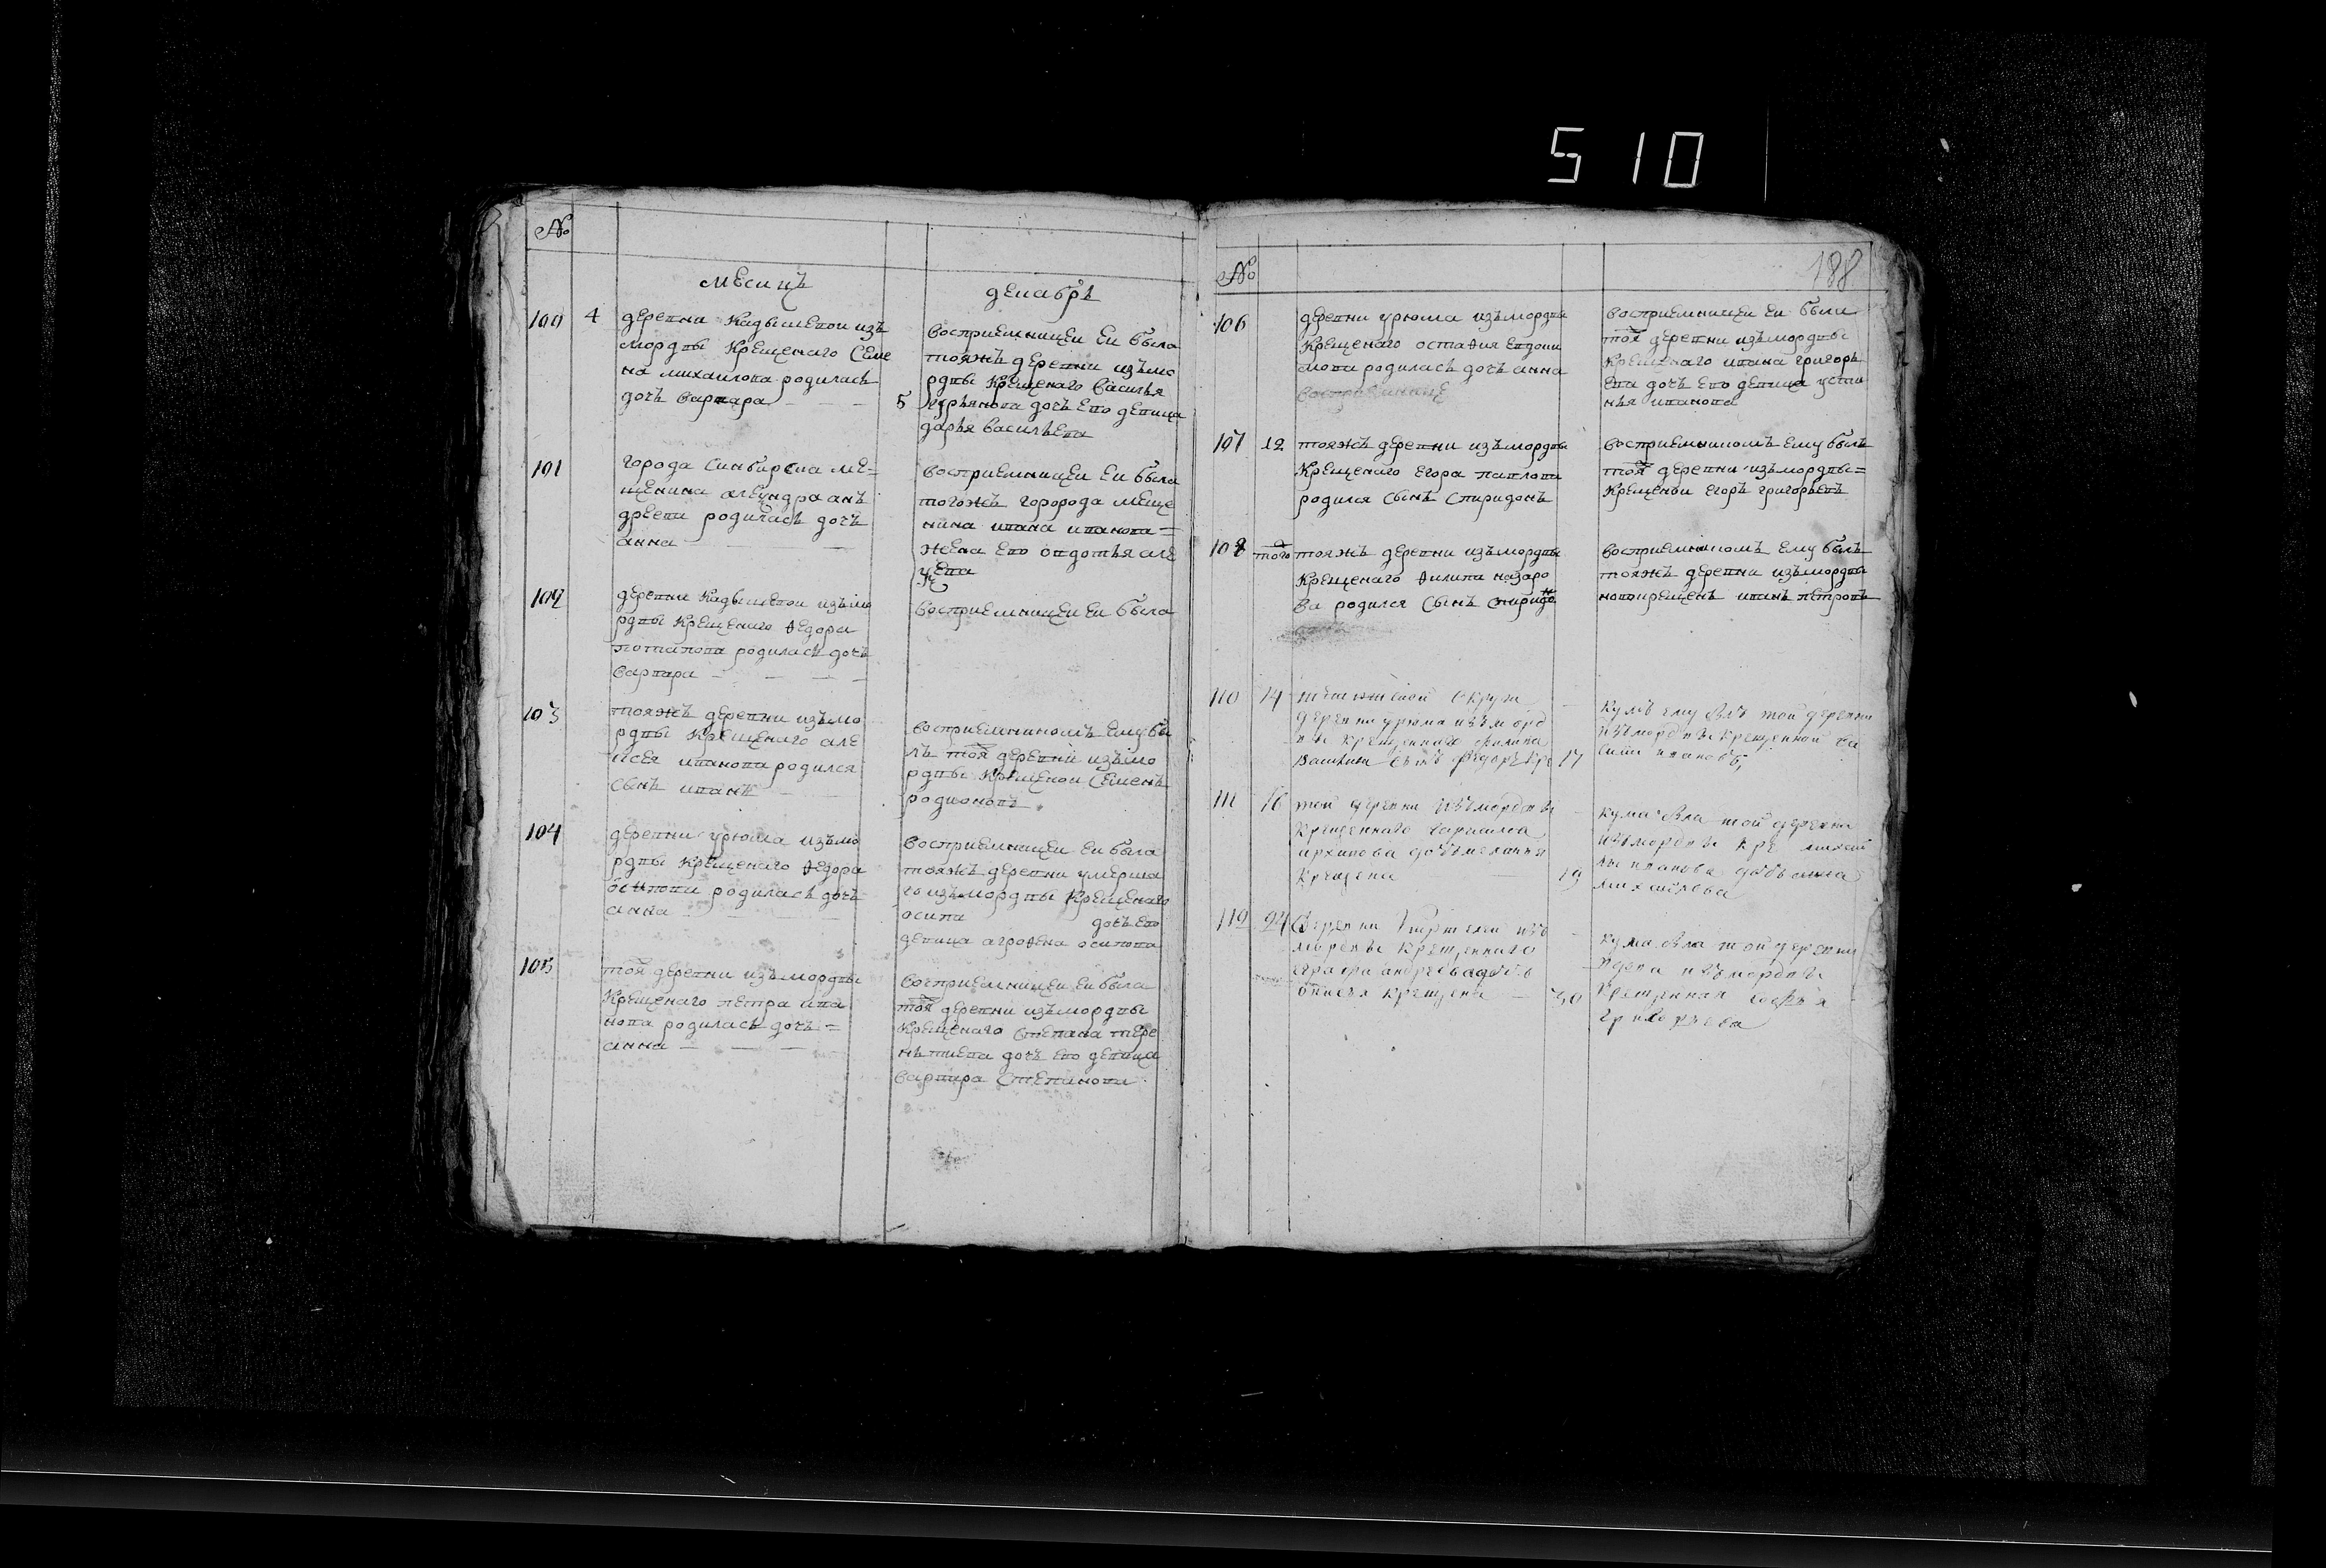 510
188
№
месицъ
декабръ
100 4 деревни Кадышевои изъ
мордвы крещенаго Семе
на михаилова родиласъ
дочъ варвара
5
восприемницеи еи была
тояжъ деревни изъмо
рдвы крещенаго василья
дочъ ево девица
дарья василъева
101 города синбирска ме=
щенина ан
дреева родиласъ дочъ
анна
восприемницеи еи была
тогожъ горорода меще
нина ивана иванова=
жена ево овдотья але
102 деревни Кадышевои изъмо
рдвы крещенаго ѳедора
потапова родиласъ дочъ
варвара
восприемницеи еи была
103 тояжъ деревни изъмо
рдвы крещенаго але
ксея иванова родился
сынъ иванъ
восприемникомъ ему бы
лъ тоя деревни изъмо
рдвы крещенои семенъ
родионовъ
104 деревни урюма изъмо
рдвы крещенаго ѳедора
осипова родиласъ дочъ
анна
восприемницеи еи была
тояжъ деревни умерша
го изъмордвы крещенаго
осипа дочъ ево
девица агроѳена осипова
105 тоя деревни изъмордвы
крещенаго петра ива
нова родиласъ дочъ=
анна
восприемницеи еи была
тоя деревни изъмордвы
крещенаго степана тере
нтиева дочъ ево девица
варвара степанова
№
106 деревни урюма изъмордвы
крещенаго остаѳия евдоки
мова родиласъ дочъ анна
восприемнице
восприемницеи еи была
тоя деревни изъмордвы
крещенаго ивана григоръ
ева дочъ ево девица усти
нья иванова
107 12 тояжъ деревни изъмордвы
крещенаго егора павлова
родился сынъ спиридонъ
восприемникомъ ему былъ
тоя деревни изъмордвы=
крещеныи егоръ григоръевъ
108 того тояжъ деревни изъмордвы
крещенаго ѳилипа назаро
ва родился сынъ спиридон
восприемникомъ ему былъ
тояжъ деревни изъмордвы
новокрещенъ иванъ петровъ
110 14 округи
деревни урюма изъ морд
вы крещеннаго филипа
сынъ ѳедоръ кре 17
кумъ ему былъ той деревни
изъмордвы крещенной ва
силий ивановъ
111 16 той деревни изъмордвы
крещеннаго
архипова дочь меланья
крещена 19
кума была той деревни
изъмордвы кре михай
ивановa дочь анна
михайлова
112 24 деревни изъ
мордвы крещеннаго
андреева дочь
крещена 30
кума была той деревни
вдова изъмордвы
крещенная софья
григорьева